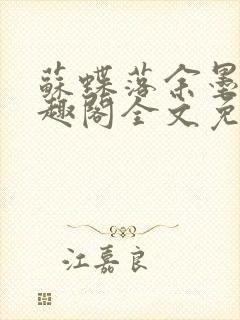 蘇蝶落余墨
趣閣全文免
江嘉良